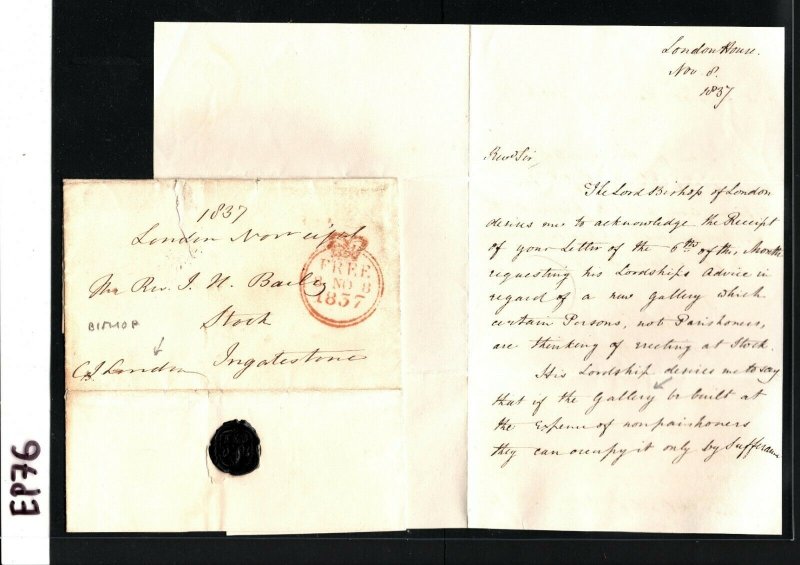 London House.
Nov. 8.
1837
Revd Sir,
The Lord Bishop of London
desires me to acknowledge the Receipt
of your Letter of the 6th of this Month
requesting his Lordships Advice in
regard of a new Gallery which
certain Persons, not Parishoners,
are thinking of erecting at Stock.
His Lordship desires me to say
that if the Gallery be built at
the Expense of nonparishoners
they can occupy it only by Sufferance
1837
London Novr eight
The Rev. J. H.
Stock
Ingatestone
BISHOP
C J London
FREE
8 NO 8
1837
EP76